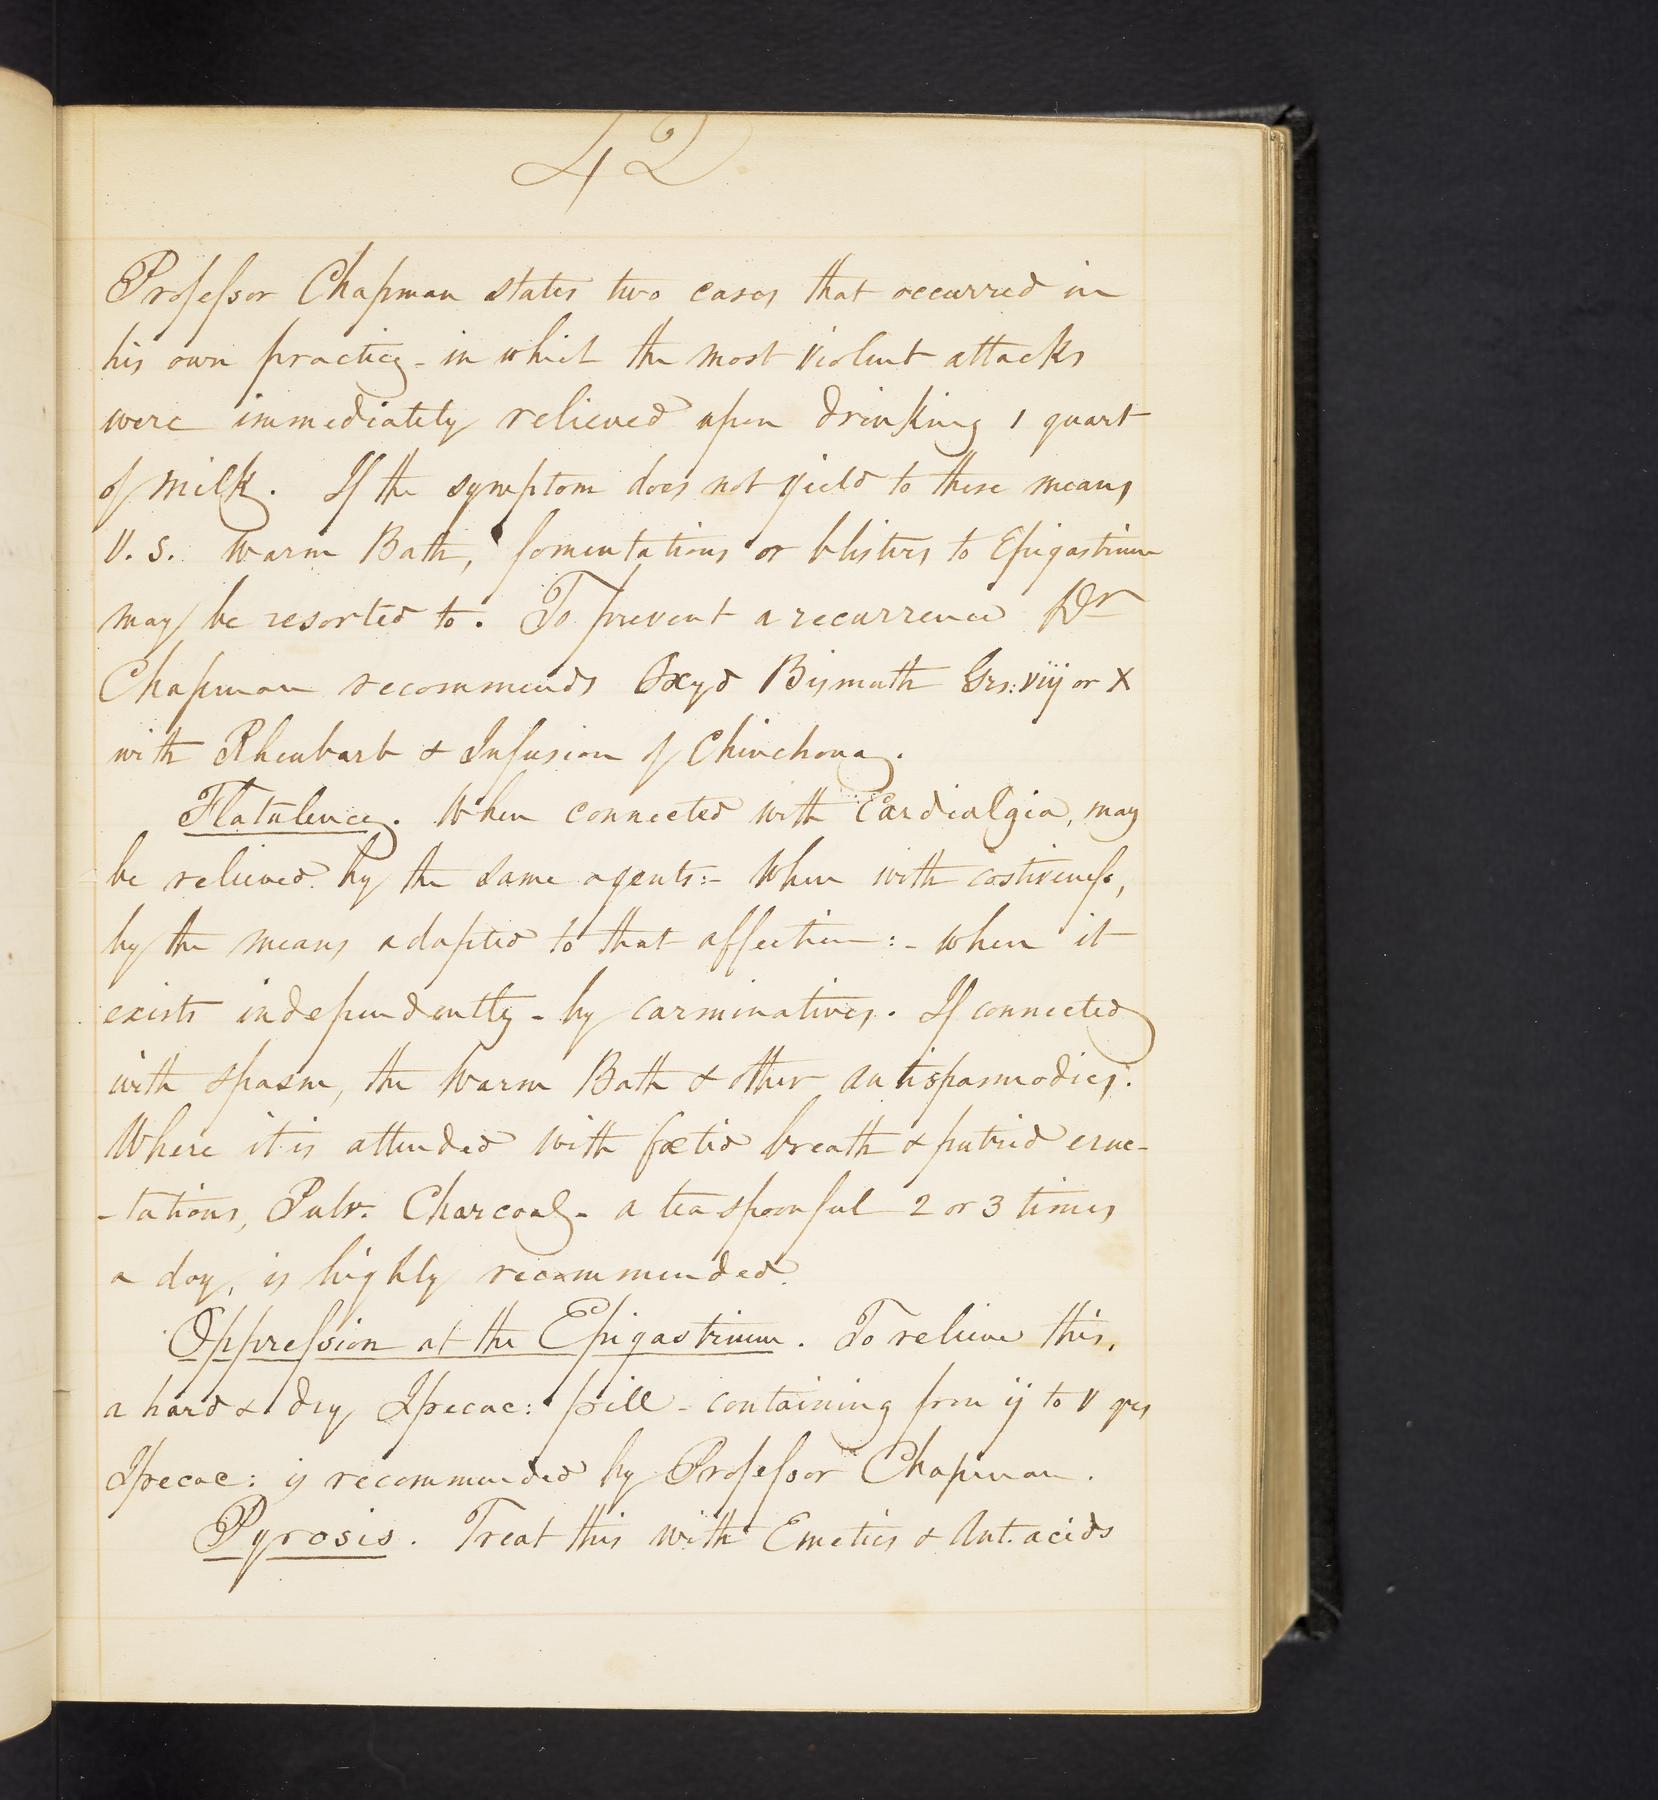 42
Professor Chapman states two cases that occurred in
his own practice - in which the most violent attacks
were immediately relieved upon drinking 1 quart
of milk. If the symptom does not yield to these means
V. S. Warm Bath, fomentations or blisters to Epigastrium
may be resorted to. To prevent a recurrence Dr
Chapman recommends Oxyd Bismuth Grs: viij or X
with Rheubarb & Infusion of Chinchona.
Flatulence. When connected with Cardialgia, may
be relieved by the same agents:- When with costiveness,
by the means adapted to that affection:- when it
exists independently - by carminatives. If connected
with spasm, the Warm Bath & other antispasmodics.
Where it is attended with fœtid breath & putrid eruc-
-tations, Pulv. Charcoal - a teaspoonful 2 or 3 times
a day, is highly recommended.
Oppression at the Epigastrium. To relieve this,
a hard & dry Ipecac: pill - containing from ij to V grs
Ipecac: is recommended by Professor Chapman.
Pyrosis. Treat this with Emetics & Ant.acids